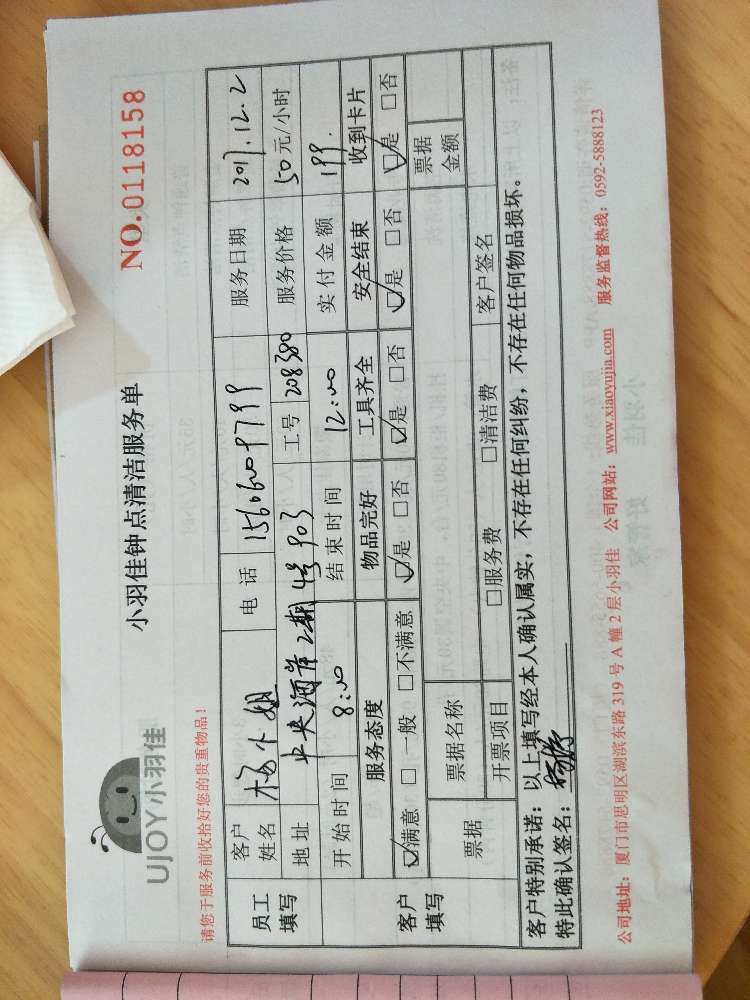 UJOY小羽佳
小羽佳钟点清洁服务单
NO.0118158
请您于服务前收拾好您的贵重物品！
员工填写 客户姓名 杨小姐 电话 15606009799 服务日期 2017.12.2
地址 中央海岸2期4号903 工号 208380 服务价格 50元/小时
客户填写 开始时间 8:00 结束时间 12:00 实付金额 199.
服务态度 物品完好 工具齐全 安全结束 收到卡片
☑满意 □一般 □不满意 ☑是 □否 ☑是 □否 ☑是 □否 ☑是 □否
票据 票据名称 票据金额
开票项目 □服务费 □清洁费 客户签名
客户特别承诺：以上填写经本人确认属实，不存在任何纠纷，不存在任何物品损坏。
特此确认签名：
公司地址：厦门市思明区湖滨东路319号A幢2层小羽佳 公司网站：www.xiaoyujia.com 服务监督热线：0592-5888123